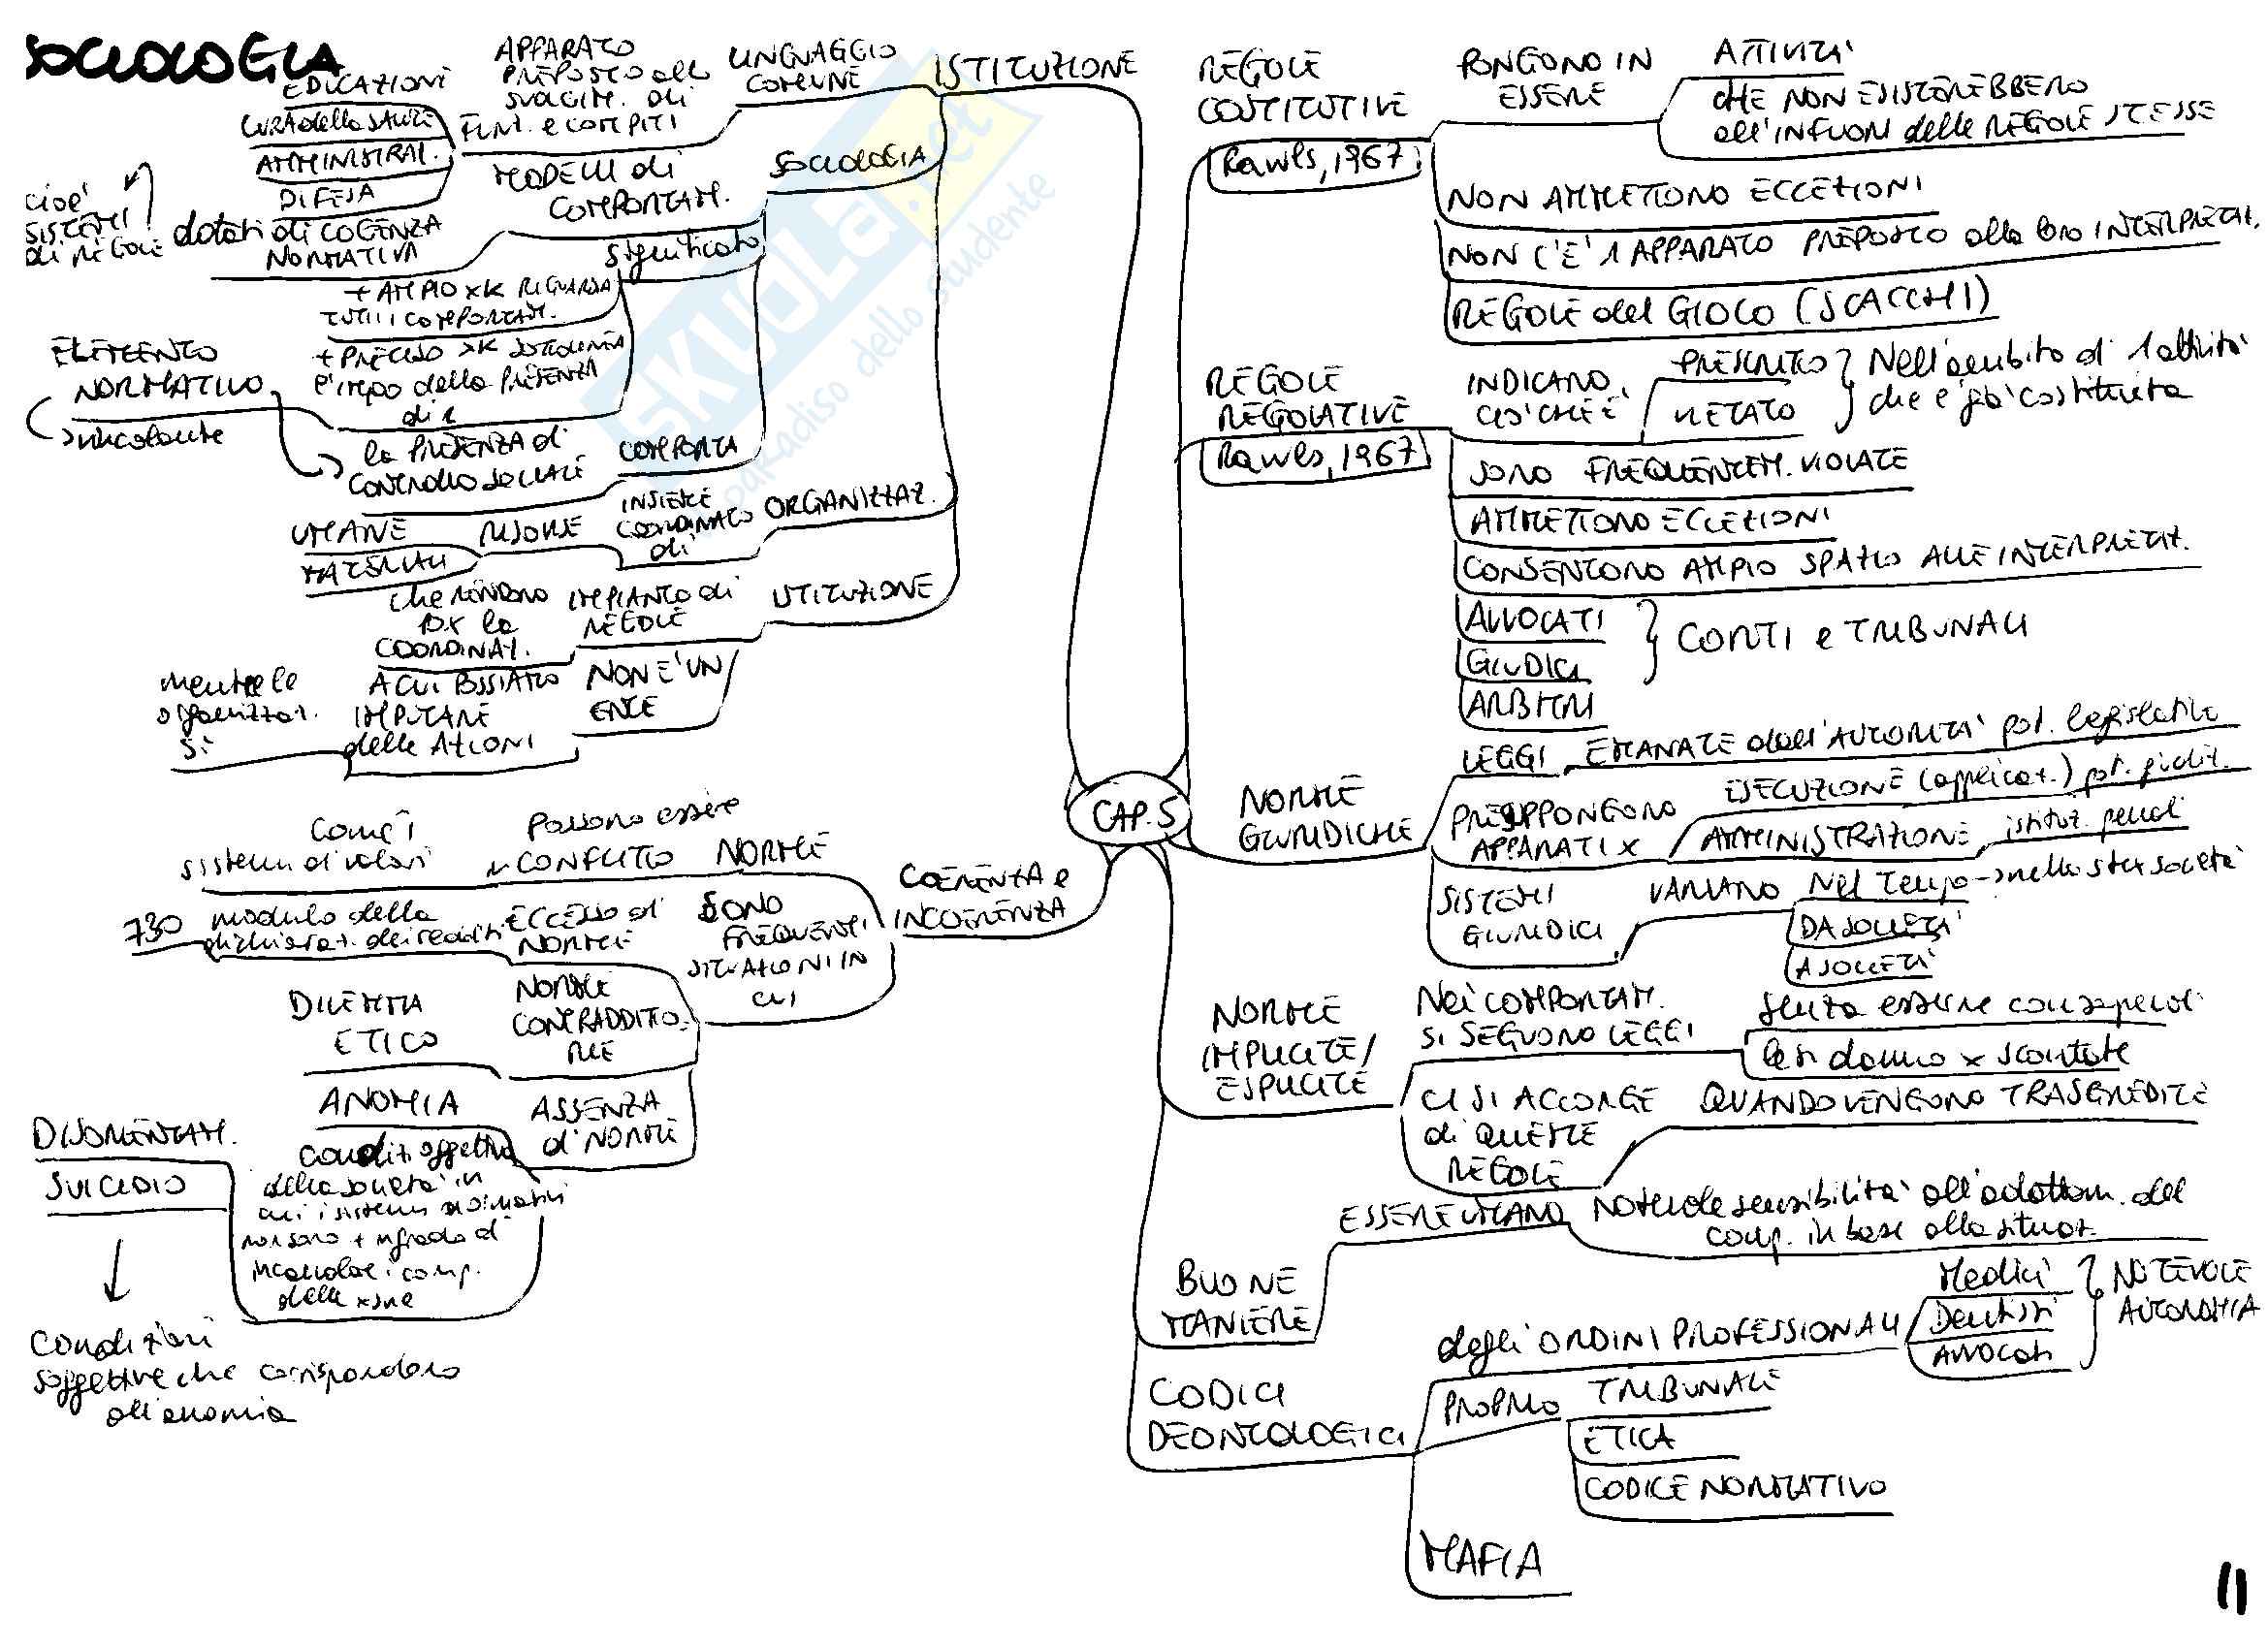 SOCIOLOGIA
ISTITUZIONE
LINGUAGGIO
COMUNE
APPARATO
PREPOSTO allo
SVOLGIM. di
FUNZ. e COMPITI
EDUCAZIONE
CURA della SALUTE
AMMINISTRAZ.
DIFESA
SOCIOLOGIA
MODELLI di
COMPORTAM.
dotati di COGENZA
NORMATIVA
cioè
SISTEMI
di REGOLE
significato
+ AMPIO xK RIGUARDA
TUTTI I COMPORTAM.
+ PRECISO xK SOTTOLINEA
della PRESENZA
di
ELEMENTO
NORMATIVO
vincolante
COMPORTA
la PRESENZA di
CONTROLLO SOCIALE
ORGANIZZAZ.
INSIEME
COORDINATO
di
RISORSE
UMANE
MATERIALI
ISTITUZIONE
IMPIANTO di
REGOLE
che RENDONO
la
COORDINAZ.
NON E' UN
ENTE
A CUI POSSIAMO
IMPUTARE
delle AZIONI
mentre le
organizzaz.
sì
CAP. 5
COERENZA e
INCOERENZA
NORME
Possono essere
in CONFLITTO
come i
sistemi di valori
SONO
FREQUENTI
SITUAZIONI IN
CUI
ECCESSO di
NORME
modulo della
dichiaraz. dei redditi
730
NORME
CONTRADDITTO-
RIE
DILEMMA
ETICO
ASSENZA
di NORME
ANOMIA
condiz. oggettiva
della società in
cui i sistemi normativi
non sono + in grado di
incanalare i comp.
delle xsone
DISORIENTAM.
SUICIDIO
Condizioni
soggettive che corrispondono
all'anomia
REGOLE
COSTITUTIVE
Rawls, 1967
PONGONO IN
ESSERE
ATTIVITA'
CHE NON ESISTEREBBERO
all'INFUORI delle REGOLE STESSE
NON AMMETTONO ECCEZIONI
NON C'E' 1 APPARATO PREPOSTO alla loro INTERPRETAZ.
REGOLE del GIOCO (SCACCHI)
REGOLE
REGOLATIVE
Rawls, 1967
INDICANO
CIO' CHE E'
PRESCRITTO
VIETATO
Nell'ambito di 1 attività
che è già costituita
SONO FREQUENTEM. VIOLATE
AMMETTONO ECCEZIONI
CONSENTONO AMPIO SPAZIO ALLE INTERPRETAZ.
AVVOCATI
GIUDICI
ARBITRI
CORTI e TRIBUNALI
NORME
GIURIDICHE
LEGGI
EMANATE dall'AUTORITA' pot. legislativo
PRESUPPONGONO
APPARATI x
ESECUZIONE (applicaz.) pot. giudiz.
AMMINISTRAZIONE
istituz. penali
SISTEMI
GIURIDICI
VARIANO
Nel tempo → nella stex società
DA SOCIETA'
A SOCIETA'
NORME
IMPLICITE/
ESPLICITE
Nei COMPORTAM.
SI SEGUONO LEGGI
senza esserne consapevoli
le si danno x scontate
CI SI ACCORGE
di QUESTE
REGOLE
QUANDO VENGONO TRASGREDITE
BUONE
MANIERE
ESSERE UMANO
Notevole sensibilità all'adattam. del
comp. in base alla situaz.
CODICI
DEONTOLOGICI
degli ORDINI PROFESSIONALI
Medici
Dentisti
Avvocati
NOTEVOLE
AUTONOMIA
PROPRIO
TRIBUNALE
ETICA
CODICE NORMATIVO
MAFIA
11
SKUOLA.net
paradiso dello studente